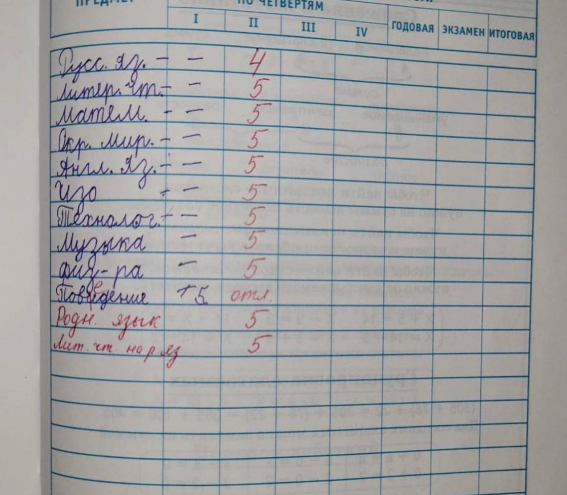 ПРЕДМЕТ ПО ЧЕТВЕРТЯМ
I II III IV ГОДОВАЯ ЭКЗАМЕН ИТОГОВАЯ
Русс. яз. - - 4
Литер. чт. - - 5
Матем. - - 5
Окр. мир. - - 5
Англ. яз. - - 5
Изо - - 5
Технолог. - - 5
Музыка - 5
Физ-ра - 5
Поведение +5 отл.
Родн. язык 5
Лит. чт. на р. яз 5